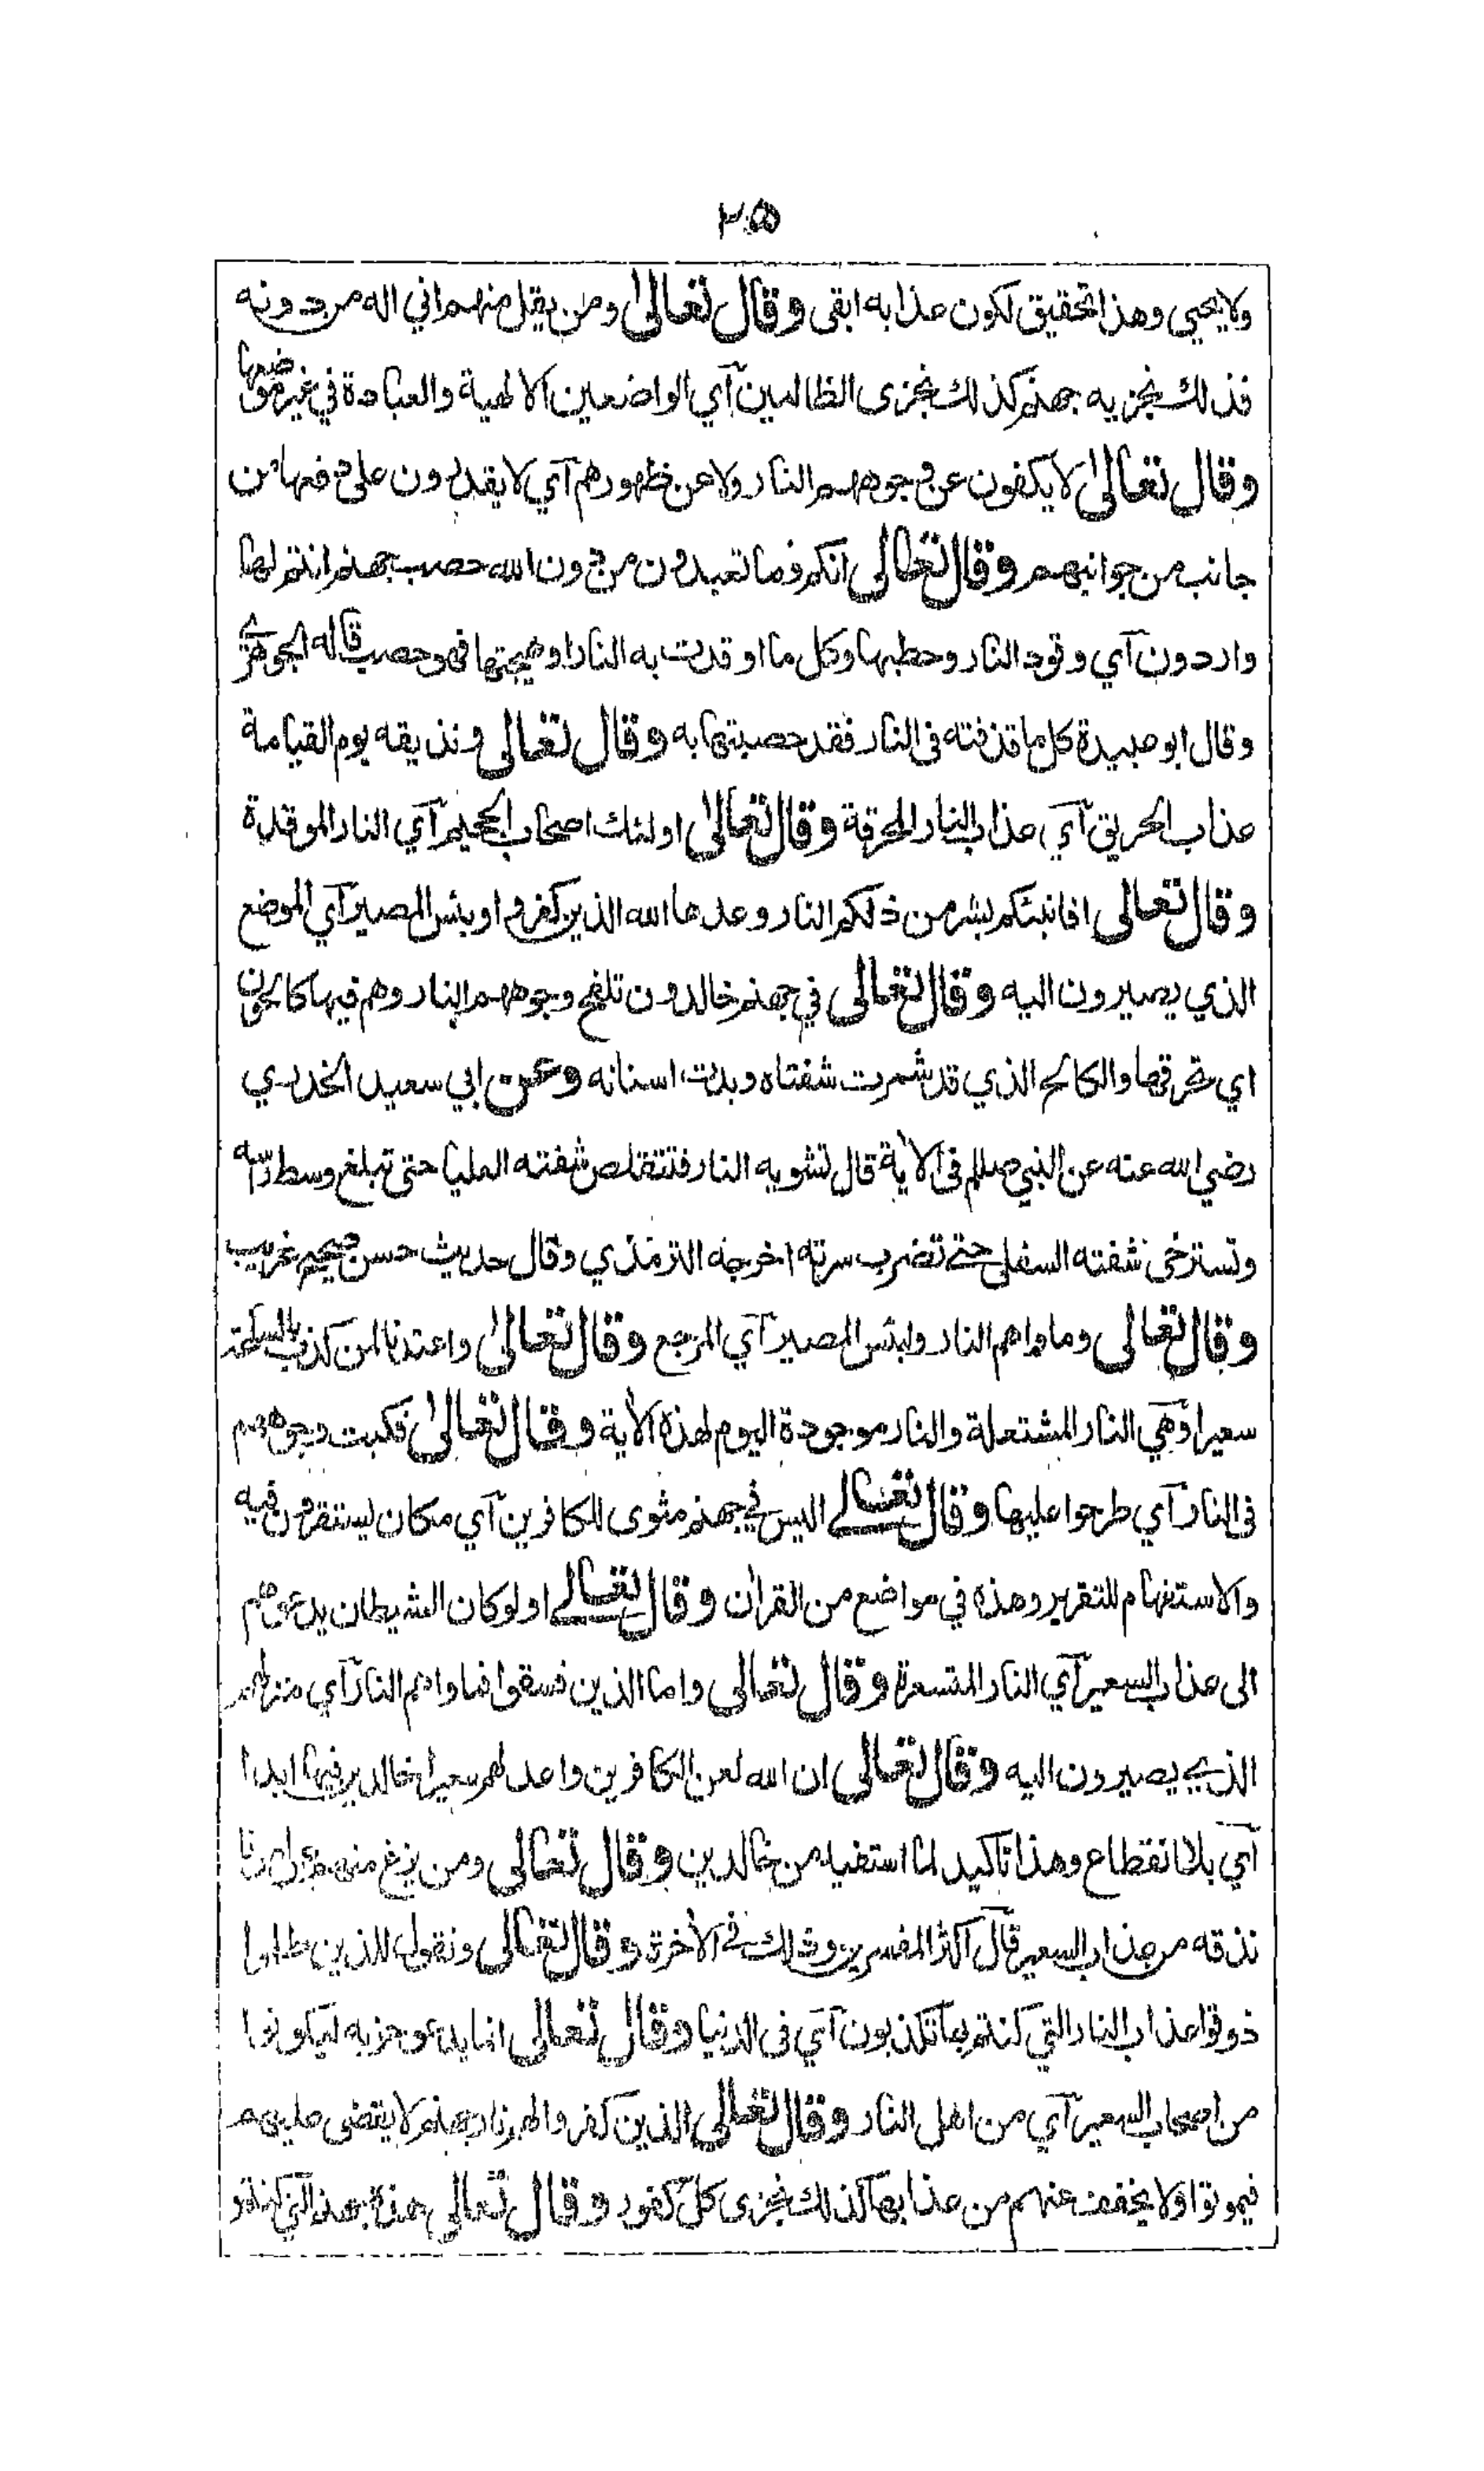 ٢٥
ولا يحيى وهذا تحقيق لكون عذابه ابقى وقال تعالى ومن يقل منهم اني اله من دونه
فذلك نجزيه جهنم كذلك نجزى الظالمين آي الواضعين الالهية والعبادة في غير موضعها
وقال تعالى لا يكفون عن وجوههم النار ولا عن ظهورهم آي لا يقدرون على دفعها من
جانب من جوانبهم وقال تعالى انكم وما تعبدون من دون الله حصب جهنم انتم لها
واردون آي وقود النار وحطبها وكل ما اوقدت به النار او هيجتها فهو حصب قاله الجوهري
وقال ابو عبيدة كل ما قذفته فى النار فقد حصبتها به وقال تعالى ونذيقه يوم القيامة
عذاب الحريق آي عذاب النار المحرقة وقال تعالى اولئك اصحاب الجحيم آي النار الموقدة
وقال تعالى افانبئكم بشر من ذلكم النار وعدها الله الذين كفروا وبئس المصير آي الموضع
الذي يصيرون اليه وقال تعالى في جهنم خالدون تلفح وجوههم النار وهم فيها كالحون
اي تحرقها والكالح الذي قد شمرت شفتاه وبدت اسنانه وعن ابي سعيد الخدري
رضي الله عنه عن النبي صللم فى الاية قال تشويه النار فتتقلص شفته العليا حتى تبلغ وسط رأسه
وتسترخى شفته السفلى حتى تضرب سرته اخرجه الترمذي وقال حديث حسن صحيح غريب
وقال تعالى وماواهم النار ولبئس المصير آي المرجع وقال تعالى واعتدنا لمن كذب بالساعة
سعيرا وهي النار المشتعلة والنار موجودة اليوم لهذه الاية وقال تعالى فكبت وجوههم
فى النار آي طرحوا عليها وقال تعالى اليس في جهنم مثوى للكافرين آي مكان يستقرون فيه
والاستفهام للتقرير وهذه في مواضع من القران وقال تعالى اولو كان الشيطان يدعوهم
الى عذاب السعير آي النار المتسعرة وقال تعالى واما الذين فسقوا فماواهم النار آي منزلهم
الذي يصيرون اليه وقال تعالى ان الله لعن الكافرين واعد لهم سعيرا خالدين فيها ابدا
آي بلا انقطاع وهذا تأكيد لما استفيد من خالدين وقال تعالى ومن يزغ منهم عن امرنا
نذقه من عذاب السعير قال اكثر المفسرين وذلك فى الاخرة وقال تعالى ونقول للذين ظلموا
ذوقوا عذاب النار التي كنتم بها تكذبون آي فى الدنيا وقال تعالى انما يدعو حزبه ليكونوا
من اصحاب السعير آي من اهل النار وقال تعالى الذين كفروا لهم نار جهنم لا يقضى عليهم
فيموتوا ولا يخفف عنهم من عذابها كذلك نجزى كل كفور وقال تعالى هذه جهنم التي كنتم